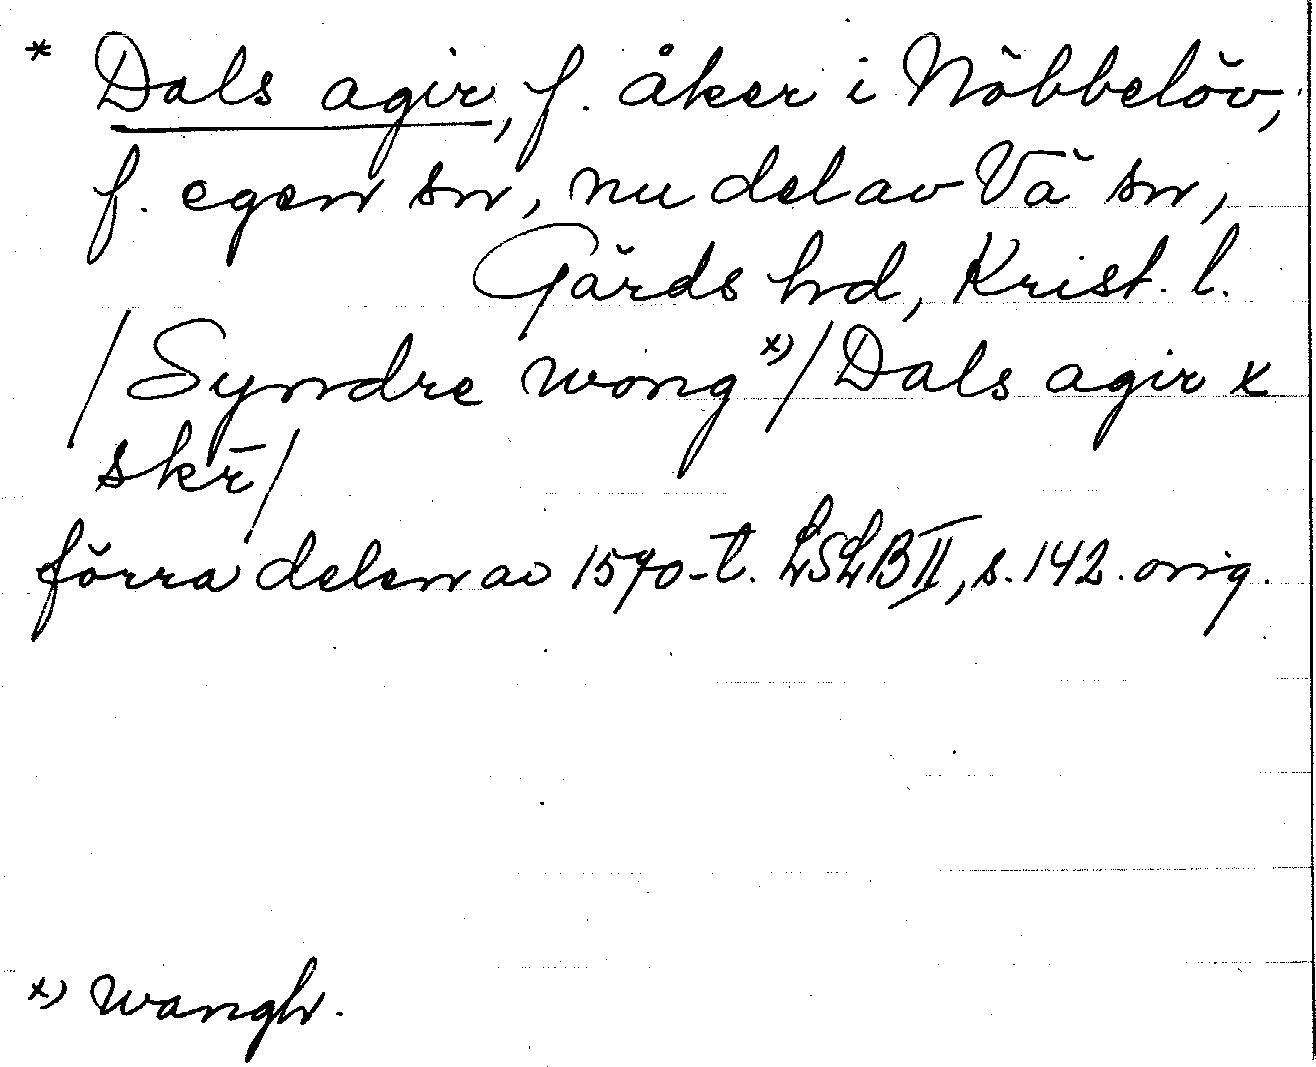 * Dals agir, f. åker i Nöbbelöv,
f. egen sn, nu del av Vä sn,
Gärds hd, Krist. l.
/Syndre wong x)/Dals agir x
skr̄/
förra delen av 1570-t. LSLB II, s. 142. orig.
x) wangh.